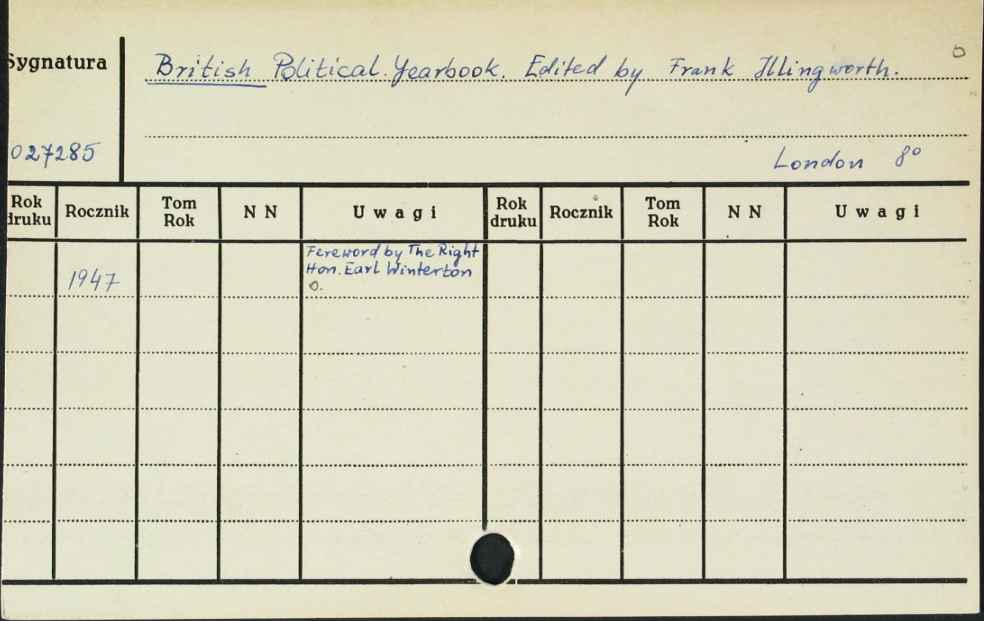 Sygnatura
British Political Yearbook. Edited by Frank Illingworth.
027285
London 8°
Rok druku Rocznik Tom Rok N N Uwagi Rok druku Rocznik Tom Rok N N Uwagi
1947
Fereword by The Right
Hon. Earl Winterton
o.